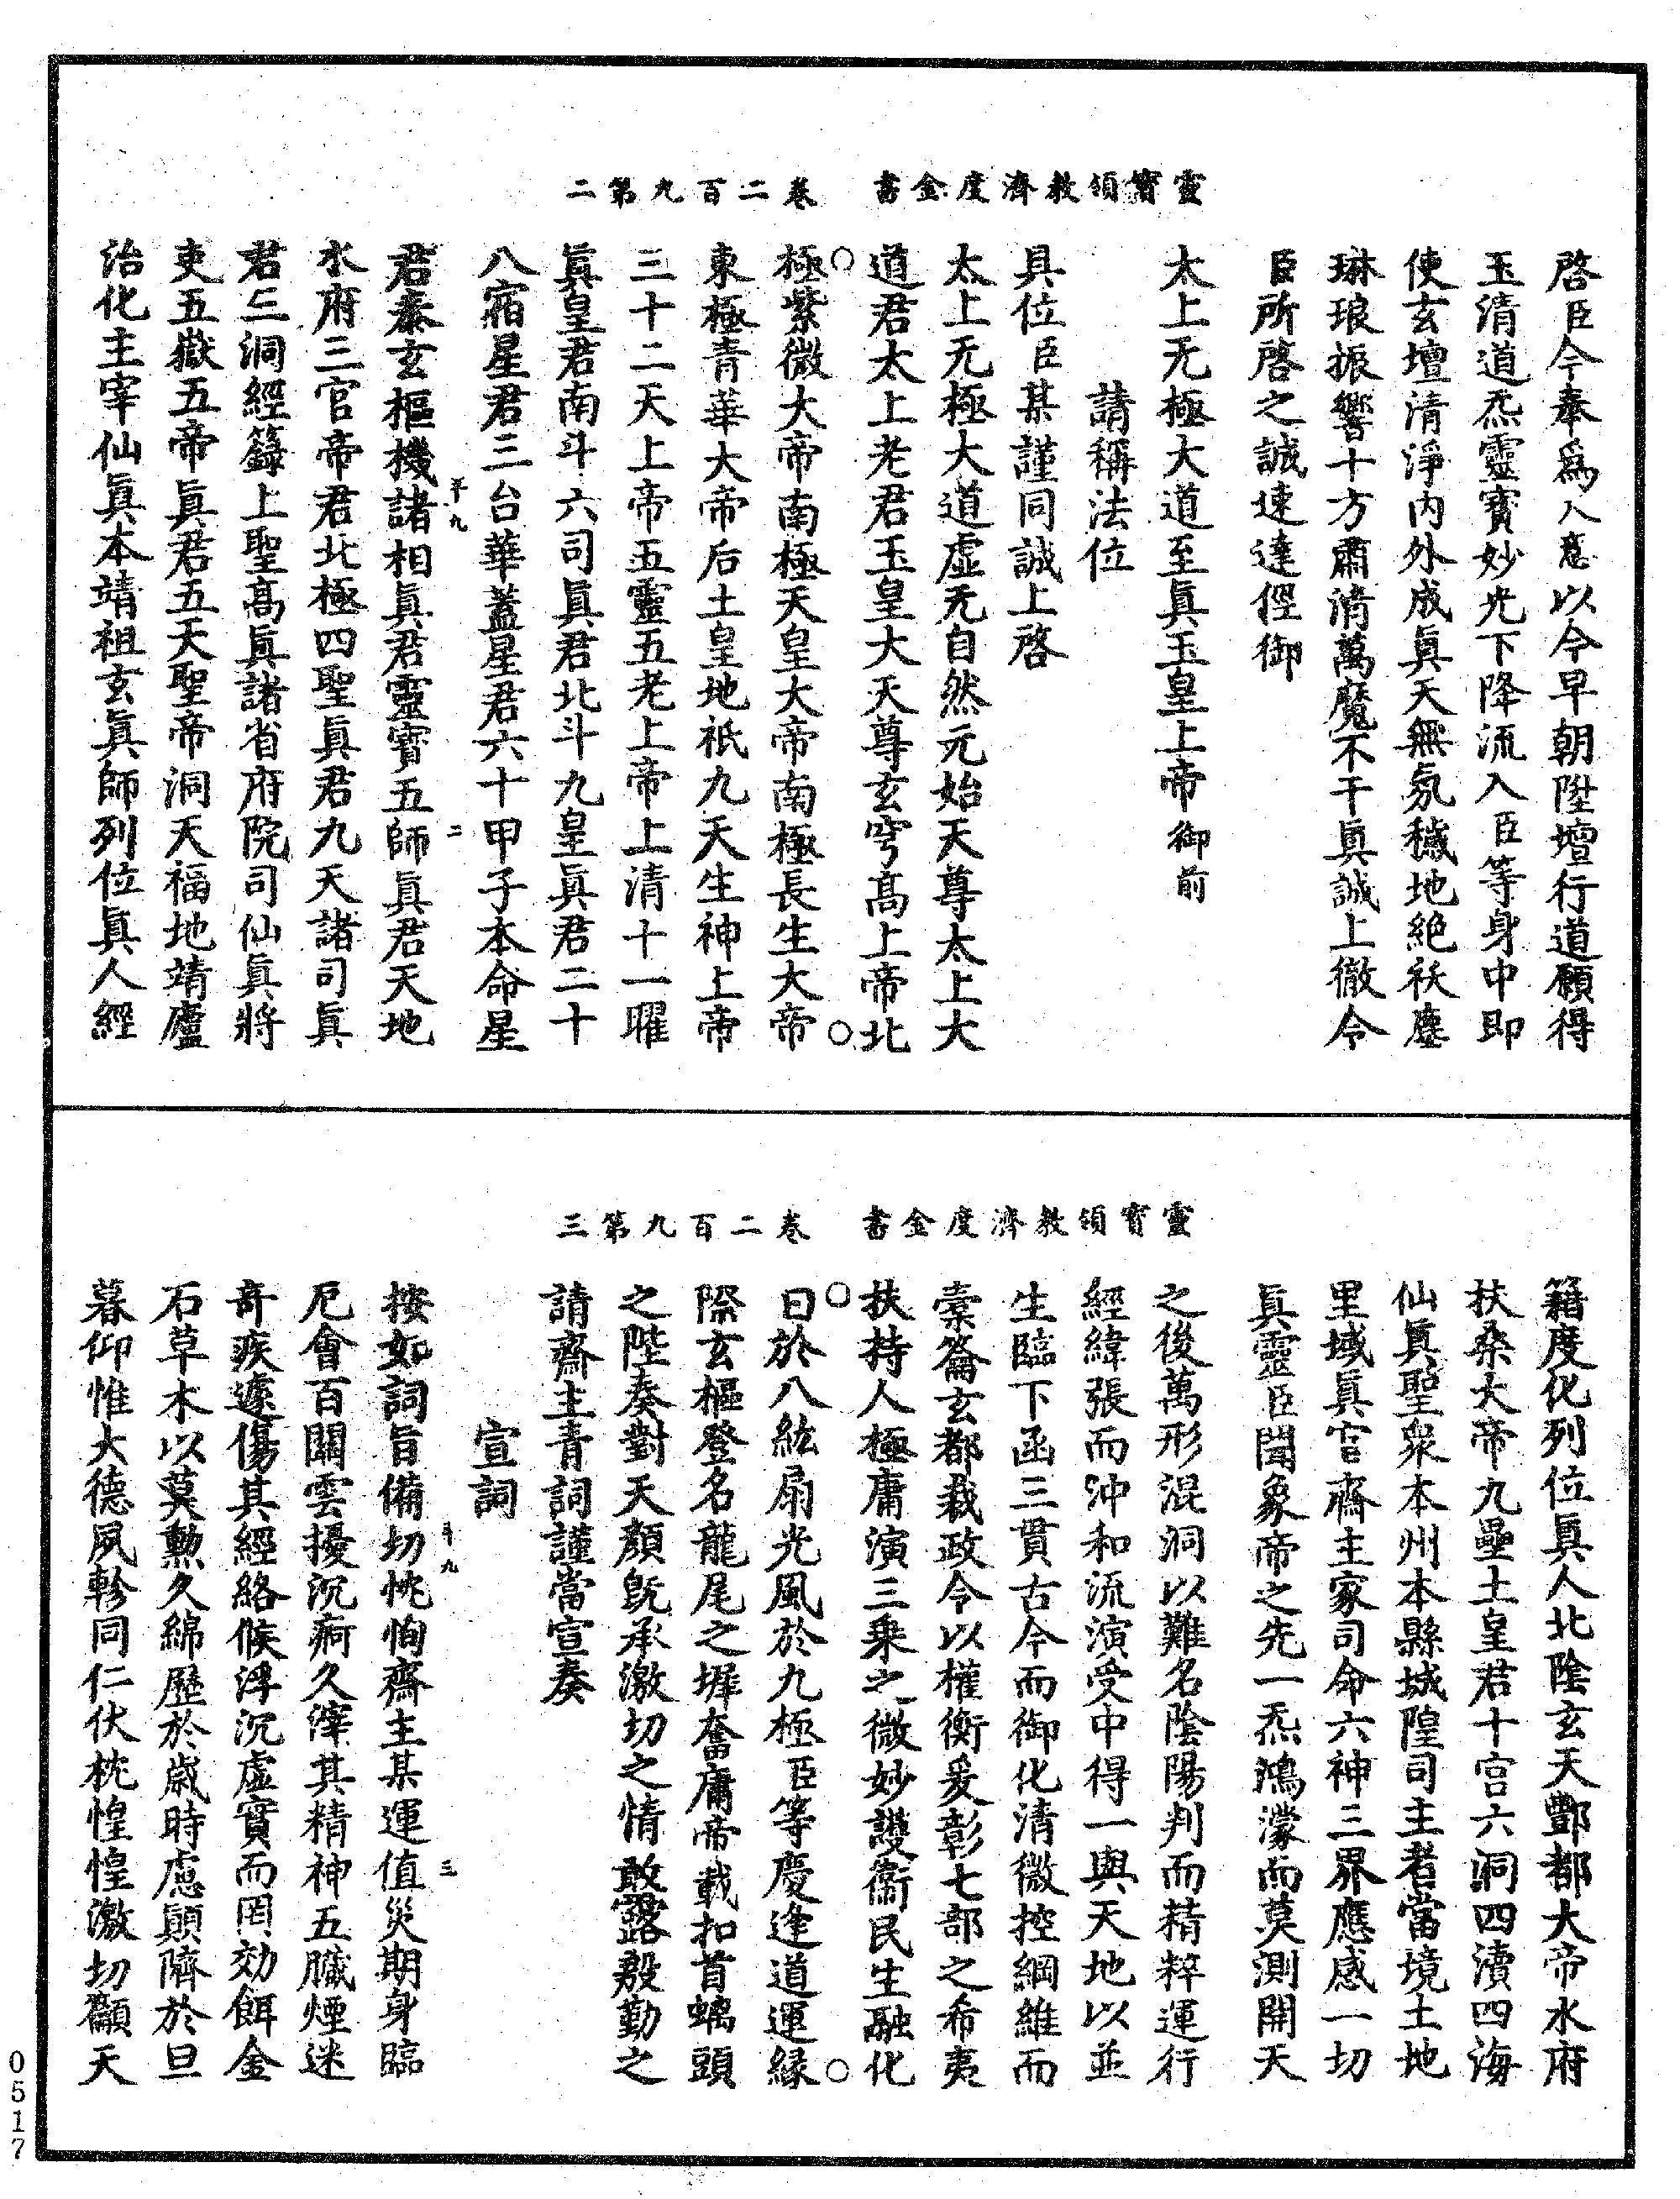 靈寶領教濟度金書　卷二百九第二
啓臣今奉爲入意以今早朝陞壇行道願得
玉清道炁靈寶妙光下降流入臣等身中即
使玄壇清淨内外成眞天無氛穢地絶祅塵
琳琅振響十方肅清萬魔不干眞誠上徹令
臣所啓之誠速達徑御
太上无極大道至眞玉皇上帝御前
請稱法位
具位臣某謹同誠上啓
太上无極大道虛无自然元始天尊太上大
道君太上老君玉皇大天尊玄穹高上帝北
極紫微大帝南極天皇大帝南極長生大帝
東極青華大帝后土皇地祇九天生神上帝
三十二天上帝五靈五老上帝上清十一曜
眞皇君南斗六司眞君北斗九皇眞君二十
八宿星君三台華蓋星君六十甲子本命星
君泰玄樞機諸相眞君靈寶五師眞君天地
平九　二
水府三官帝君北極四聖眞君九天諸司眞
君三洞經籙上聖高眞諸省府院司仙眞將
吏五嶽五帝眞君五天聖帝洞天福地靖廬
治化主宰仙眞本靖祖玄眞師列位眞人經
靈寶領教濟度金書　卷二百九第三
籍度化列位眞人北陰玄天酆都大帝水府
扶桑大帝九壘土皇君十宫六洞四瀆四海
仙眞聖衆本州本縣城隍司主者當境土地
里域眞官齋主家司命六神三界應感一切
眞靈臣聞象帝之先一炁鴻濛而莫測開天
之後萬形混洞以難名陰陽判而精粹運行
經緯張而沖和流演受中得一與天地以並
生臨下函三貫古今而御化清微控綱維而
橐籥玄都裁政令以權衡爰彰七部之希夷
扶持人極庸演三乘之微妙護衞民生融化
曰於八紘扇光風於九極臣等慶逢道運緣
際玄樞登名龍尾之墀奮庸帝載扣首螭頭
之陛奏對天顏旣承激切之情敢露殷勤之
請齋主青詞謹當宣奏
宣詞
按如詞旨備切忱恂齋主某運值災期身臨
平九　三
厄會百關雲擾沉痾久滓其精神五臟煙迷
奇疾遽傷其經絡候浮沉虛實而罔効餌金
石草木以莫勲久綿歷於歲時慮顛隮於旦
暮仰惟大德夙軫同仁伏枕惶惶激切籲天
0517